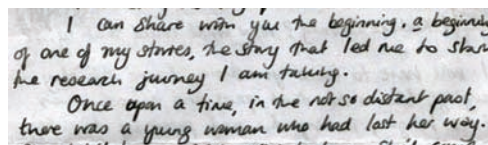 I can share with you the beginning, a beginning
of one of my stories, the story that led me to start
the research journey I am taking.
Once upon a time, in the not so distant past,
there was a young woman who had lost her way.